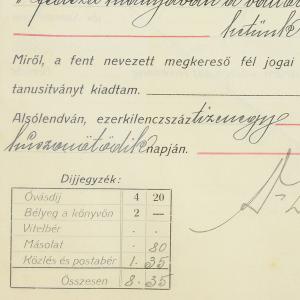 hetünk
Miről, a fent nevezett megkereső fél jogai
tanusitványt kiadtam.
Alsólendván, ezerkilenczszáz tizenegy
huszonötödik napján.
Díjjegyzék:
Óvásdíj 4 20
Bélyeg a könyvön 2 —
Vitelbér . .
Másolat . 80
Közlés és postabér 1. 35
Összesen 8. 35